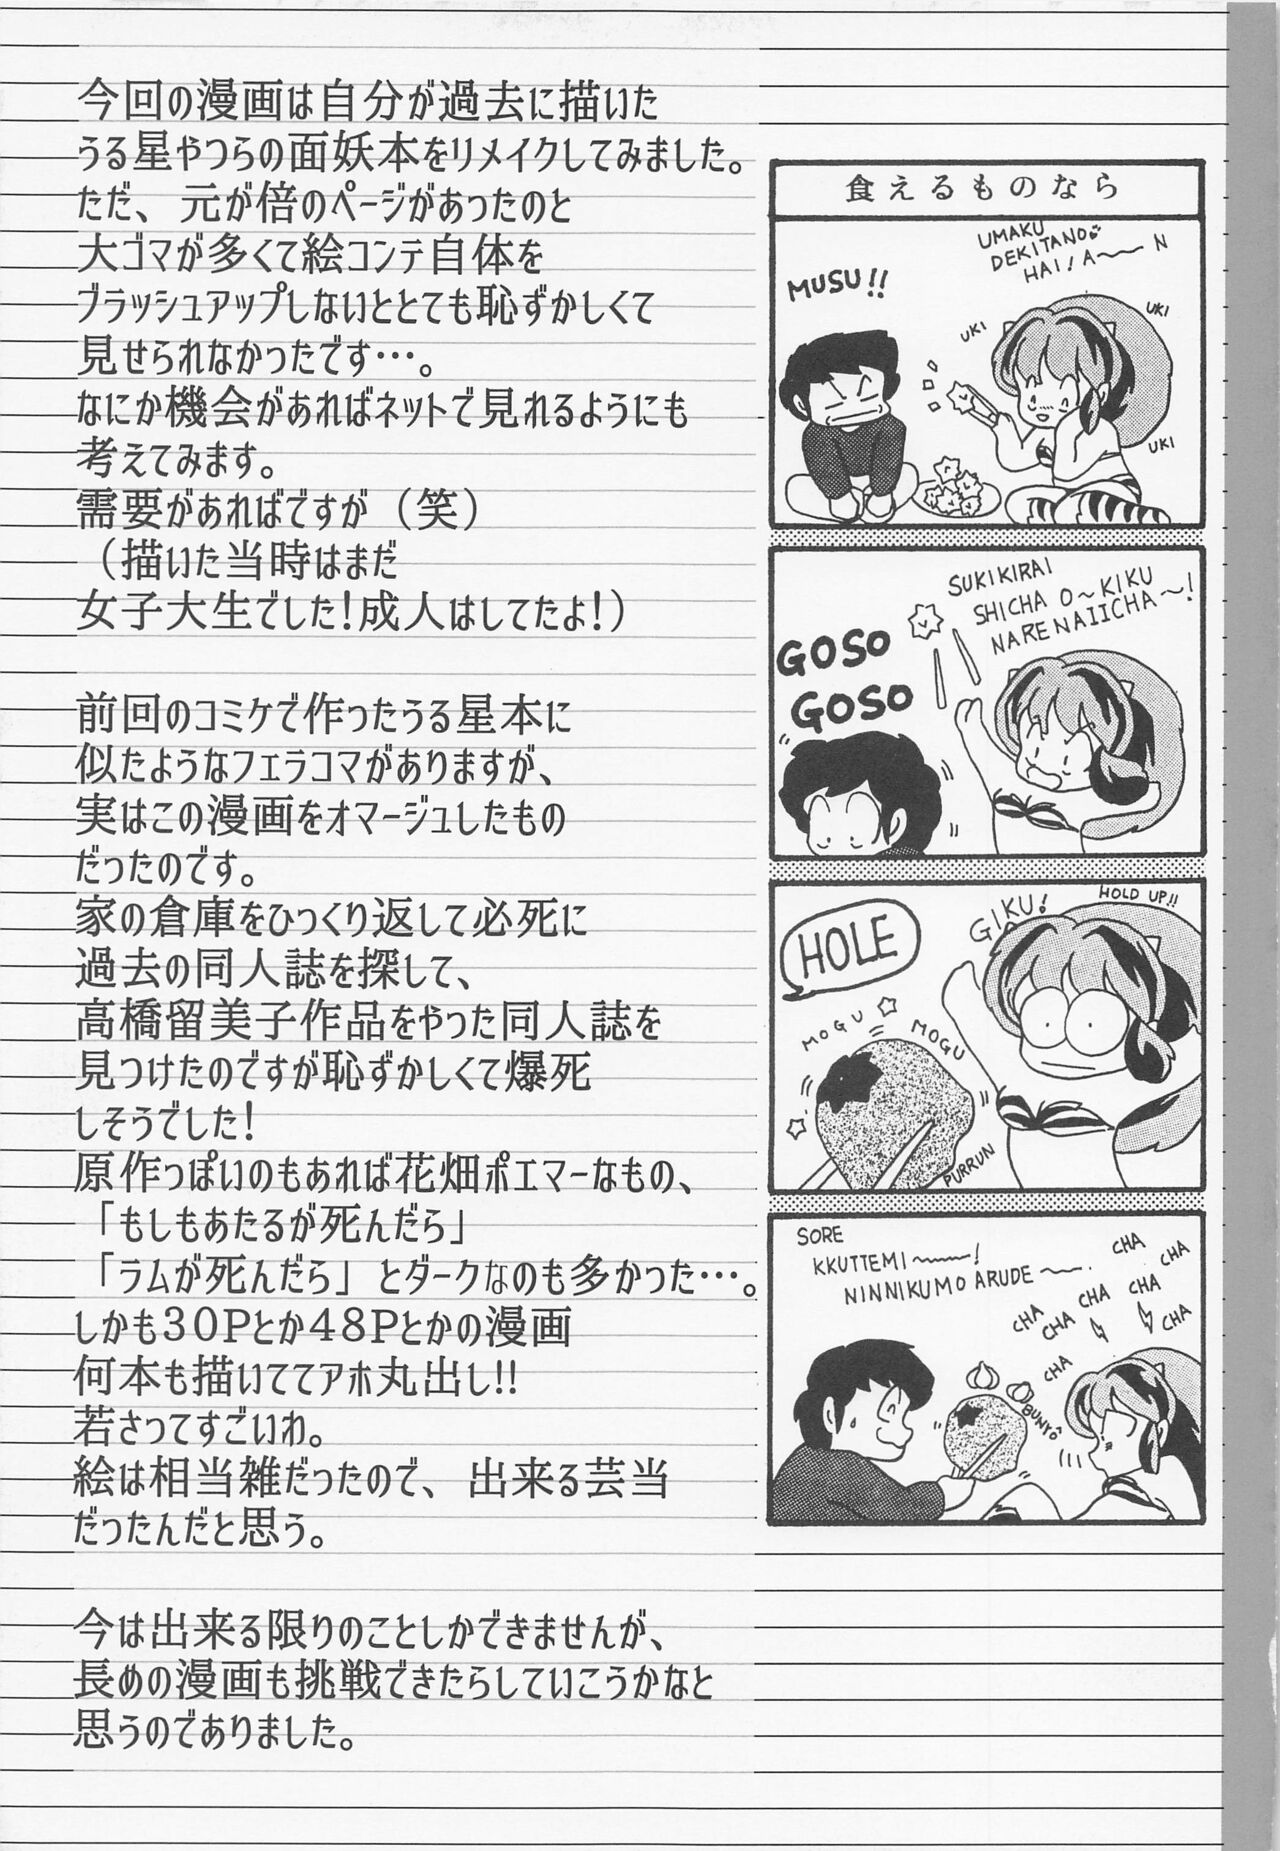 今回の漫画は自分が過去に描いた
うる星やつらの面妖本をリメイクしてみました。
ただ、元が倍のページがあったのと
大ゴマが多くて絵コンテ自体を
ブラッシュアップしないととても恥ずかしくて
見せられなかったです…。
なにか機会があればネットで見れるようにも
考えてみます。
需要があればですが（笑）
（描いた当時はまだ
女子大生でした！成人はしてたよ！）
前回のコミケで作ったうる星本に
似たようなフェラコマがありますが、
実はこの漫画をオマージュしたもの
だったのです。
家の倉庫をひっくり返して必死に
過去の同人誌を探して、
高橋留美子作品をやった同人誌を
見つけたのですが恥ずかしくて爆死
しそうでした！
原作っぽいのもあれば花畑ポエマーなもの、
「もしもあたるが死んだら」
「ラムが死んだら」とダークなのも多かった…。
しかも30Pとか48Pとかの漫画
何本も描いててアホ丸出し!!
若さってすごいわ。
絵は相当雑だったので、出来る芸当
だったんだと思う。
今は出来る限りのことしかできませんが、
長めの漫画も挑戦できたらしていこうかなと
思うのでありました。
食えるものなら
UMAKU
DEKITANO
HAI!A〜〜N
MUSU!!
UKI
UKI
UKI
UKI
SUKIKIRAI
SHICHA O〜KIKU
NARENAIICHA〜!
GOSO
GOSO
HOLD UP!!
GIKU!
HOLE
MOGU
MOGU
PURRUN
SORE
KKUTTEMI〜〜!
NINNIKUMO ARUDE〜.
CHA
CHA
CHA
CHA
CHA
CHA
CHA
CHA
BUNYO